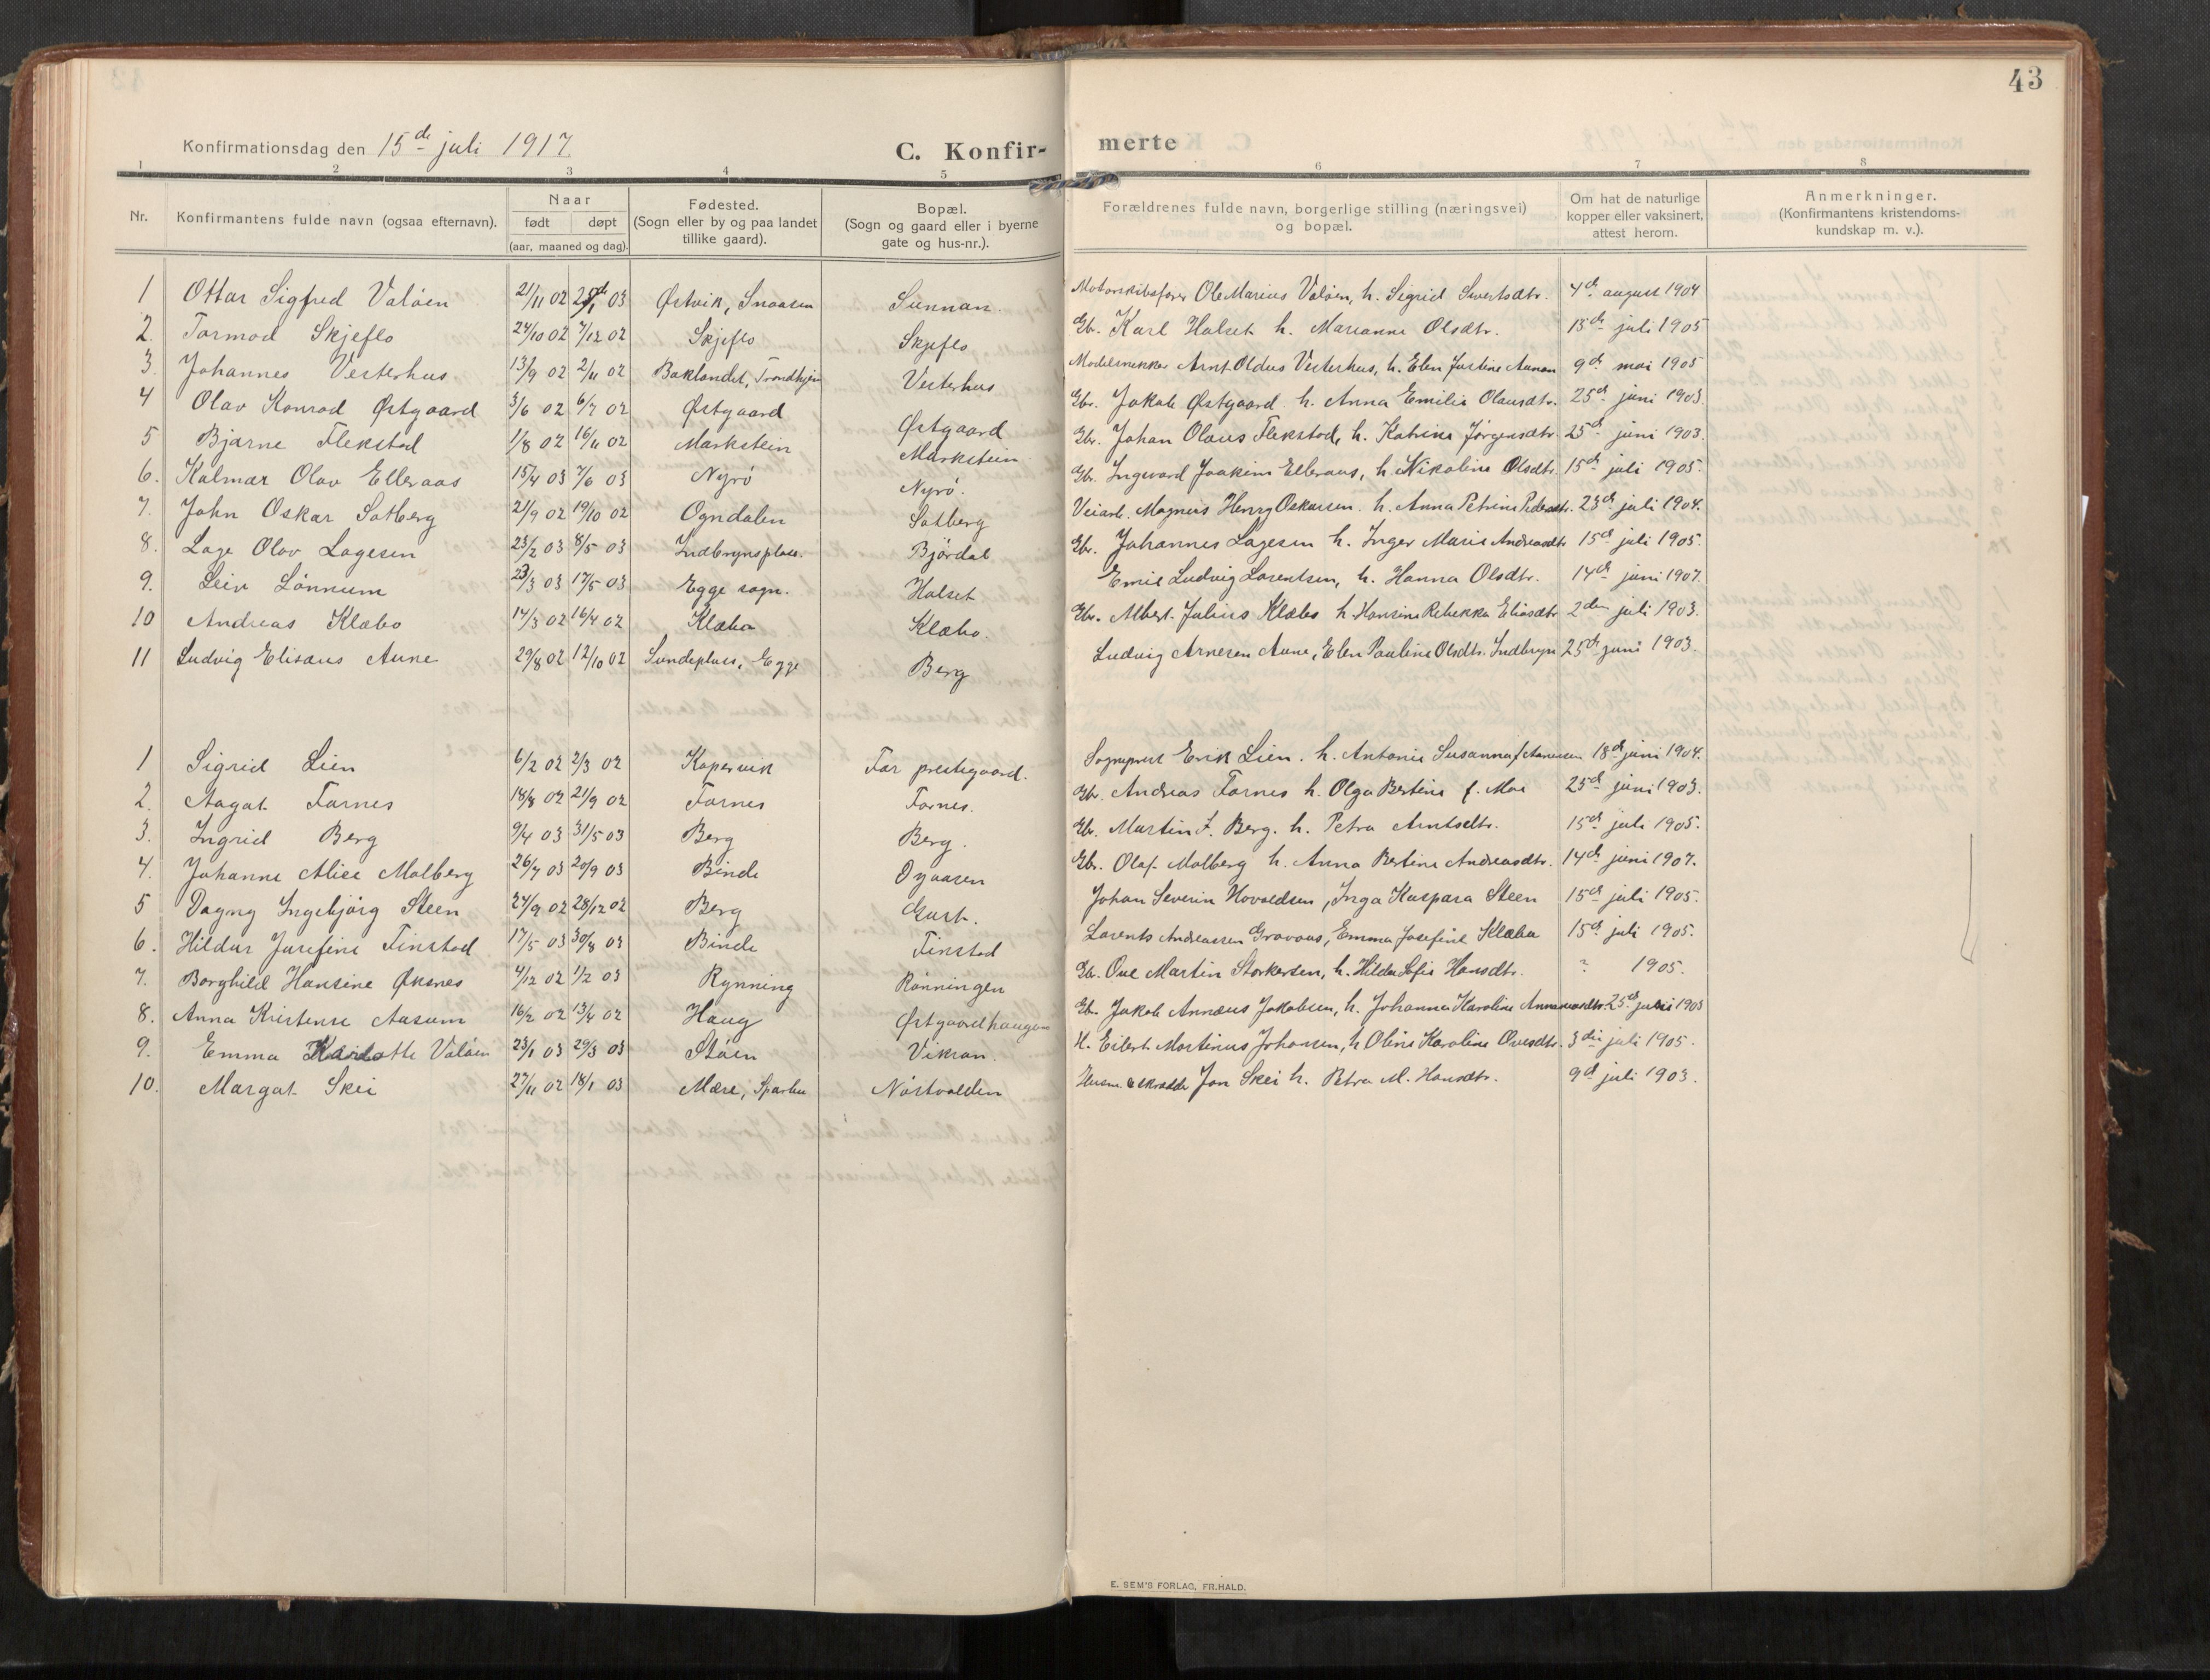 43
Konfirmationsdag den 15de juli 1917.
C. Konfir-
merte
1 2 3 4 5 6 7 8
Nr.
Konfirmantens fulde navn (ogsaa efternavn).
Naar
født døpt
(aar, maaned og dag).
Fødested.
(Sogn eller by og paa landet
tillike gaard).
Bopæl.
(Sogn og gaard eller i byerne
gate og hus-nr.).
Forældrenes fulde navn, borgerlige stilling (næringsvei)
og bopæl.
Om hat de naturlige
kopper eller vaksinert,
attest herom.
Anmerkninger.
(Konfirmantens kristendoms-
kundskap m. v.).
1 Ottar Sigfred Valöen 21/11 02 03 Østvik, Snaasen Sunnan. Ole Marius Valöen, h. Sigrid Sivertsdtr. 4de august 1904
2. Tormod Skjeflo 24/10 02 7/12 02 Skjeflo Skjeflo Gbr. Karl Halset h. Marianne Olsdtr. 15de juli 1905
3. Johannes Vesterhus. 13/9 02 2/11 02 Baklandet, Trondhjem Vesterhus Modelsnekker Arnt Oldus Vesterhus, h. Elen Justine Aunan 9de mai 1905
4 Olav Konrad Østgaard 3/6 02 6/7 02 Østgaard Østgaard Gbr. Jakob Østgaard h. Anna Emilie Olausdtr. 25de juni 1903.
5 Bjarne Flekstad 1/8 02 16/11 02 Markstein Markstein Gbr. Johan Olaus Flekstad, h. Katrine Jørgensdtr. 25de juni 1903.
6. Kalmar Olav Elleraas 15/4 03 7/6 03 Nyrö Nyrö. Gbr. Ingvard Joakim Elleraas, h. Nikoline Olsdtr. 15de juli 1905.
7. John Oskar Satberg 21/9 02 19/10 02 Ogndalen Satberg Veiarb. Magnus Henry Oskarsen. h. Anna Petrine Pedersdtr. 23de juli 1904.
8. Lage Olav Lagesen 23/2 03 8/5 03 Indbrynsplads. Björdal Gbr. Johannes Lagesen h. Inger Marie Andreasdtr. 15de juli 1905.
9. Leiv Lönnum 23/3 03 17/5 03 Egge sogn. Halset Emil Ludvig Lorentsen, h. Hanna Olsdtr. 14de juni 1907.
10 Andreas Klæbo 14/3 02 16/4 02 Klæbo Klæbo. Gbr. Albert Julius Klæbo h. Hansine Rebekka Eliasdtr. 2den juli 1903.
11 Ludvig Elisæus Aune 29/8 02 12/10 02 Sundsplads, Egge Berg Ludvig Arnesen Aune, Elen Pauline Olsdtr. Indbryn 25de juni 1903.
1 Sigrid Lien 6/2 02 2/3 02 Kopervik For prestegaard. Sogneprest Erik Lien. h. Antonie Susanna 18de juni 1904.
2. Aagat Fornes 18/8 02 21/9 02 Fornes Fornes. Gbr. Andreas Fornes h. Olga Bertine f. Moe 25de juni 1903.
3. Ingrid Berg 9/4 03 31/5 03 Berg Berg. Gbr. Martin J. Berg. h. Petra Arntsdtr. 15de juli 1905.
4. Johanne Alise Molberg 26/7 03 20/9 03 Binde Oyaasen Gbr. Olaf Molberg h. Anna Bertine Andreasdtr. 14de juni 1907.
5 Dagny Ingebjörg Steen 24/9 02 28/12 02 Berg Johan Severin Hovaldsen, Inga Kaspara Steen 15de juli 1905.
6. Hildur Josefine Finstad 17/5 03 30/8 03 Binde Finstad Lorents Andreassen Gravaas, Emma Josefine Klæbo 15de juli 1905.
7. Borghild Hansine Øksnes 4/12 02 1/2 03 Rynning Rönningen Gbr. Ove Martin Storkersen, h. Hilda Sofie Hansdtr. ? 1905.
8. Anna Kristense Aasum 16/2 02 13/4 02 Haug Østgaardhaugen Gbr. Jakob Annæus Jakobsen, h. Johanna Karoline 25de juni 1903
9. Emma Karlotte Valöen 23/1 03 29/3 03 Stöen Vikran. H. Eilert Martinus Johansen, h. Oline Karoline Ovesdtr. 3die juli 1905.
10. Margat Skei 27/11 02 18/1 03 Mære, Sparbu Nöstvolden Husm. & skredder Jon Skei h. Petra M. Hansdtr. 9de juli 1903.
E. SEM'S FORLAG, FR.HALD.